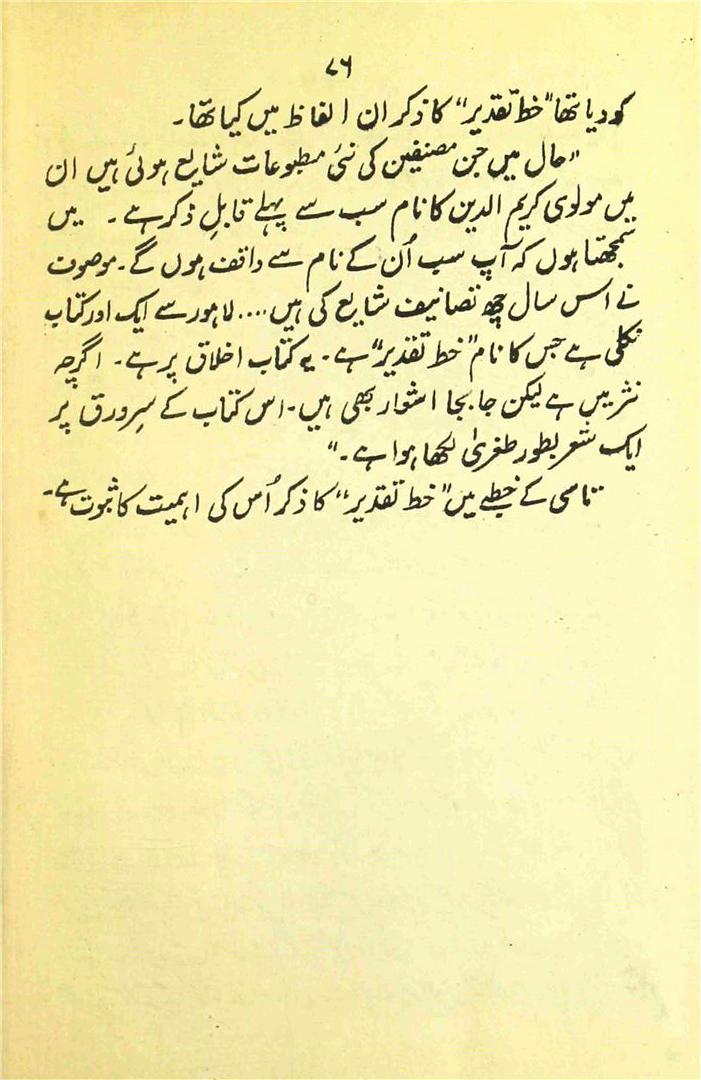 ۷۶
کو دیا تھا "خط تقدیر" کا ذکر ان الفاظ میں کیا تھا۔
"حال میں جن مصنفین کی نئی مطبوعات شایع ہوئی ہیں ان
میں مولوی کریم الدین کا نام سب سے پہلے قابلِ ذکر ہے۔ میں
سمجھتا ہوں کہ آپ سب اُن کے نام سے واقف ہوں گے۔ موصوف
نے اس سال چھ تصانیف شایع کی ہیں .... لاہور سے ایک اور کتاب
نکلی ہے جس کا نام "خط تقدیر" ہے۔ یہ کتاب اخلاق پر ہے۔ اگرچہ
نثر میں ہے لیکن جا بجا اشعار بھی ہیں۔ اس کتاب کے سرِورق پر
ایک شعر بطور طغریٰ لکھا ہوا ہے۔"
تاسی کے خطبے میں "خط تقدیر" کا ذکر اُس کی اہمیت کا ثبوت ہے۔